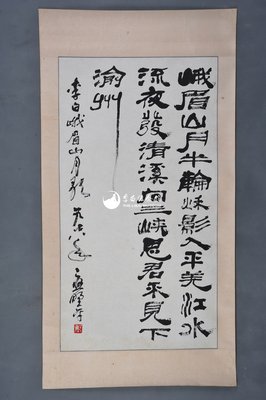 峨眉山月半輪秋影入平羌江水
流夜發清溪向三峽思君不見下
渝州
李白峨眉山月歌